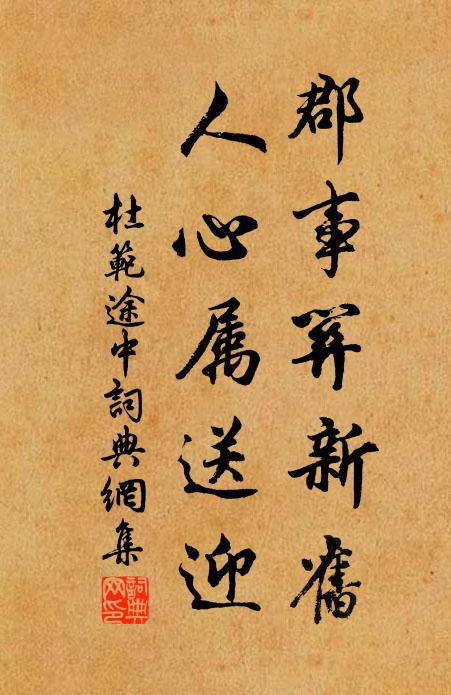 郡事關新舊
人心属送迎
杜範途中詞典網集
詞典网印